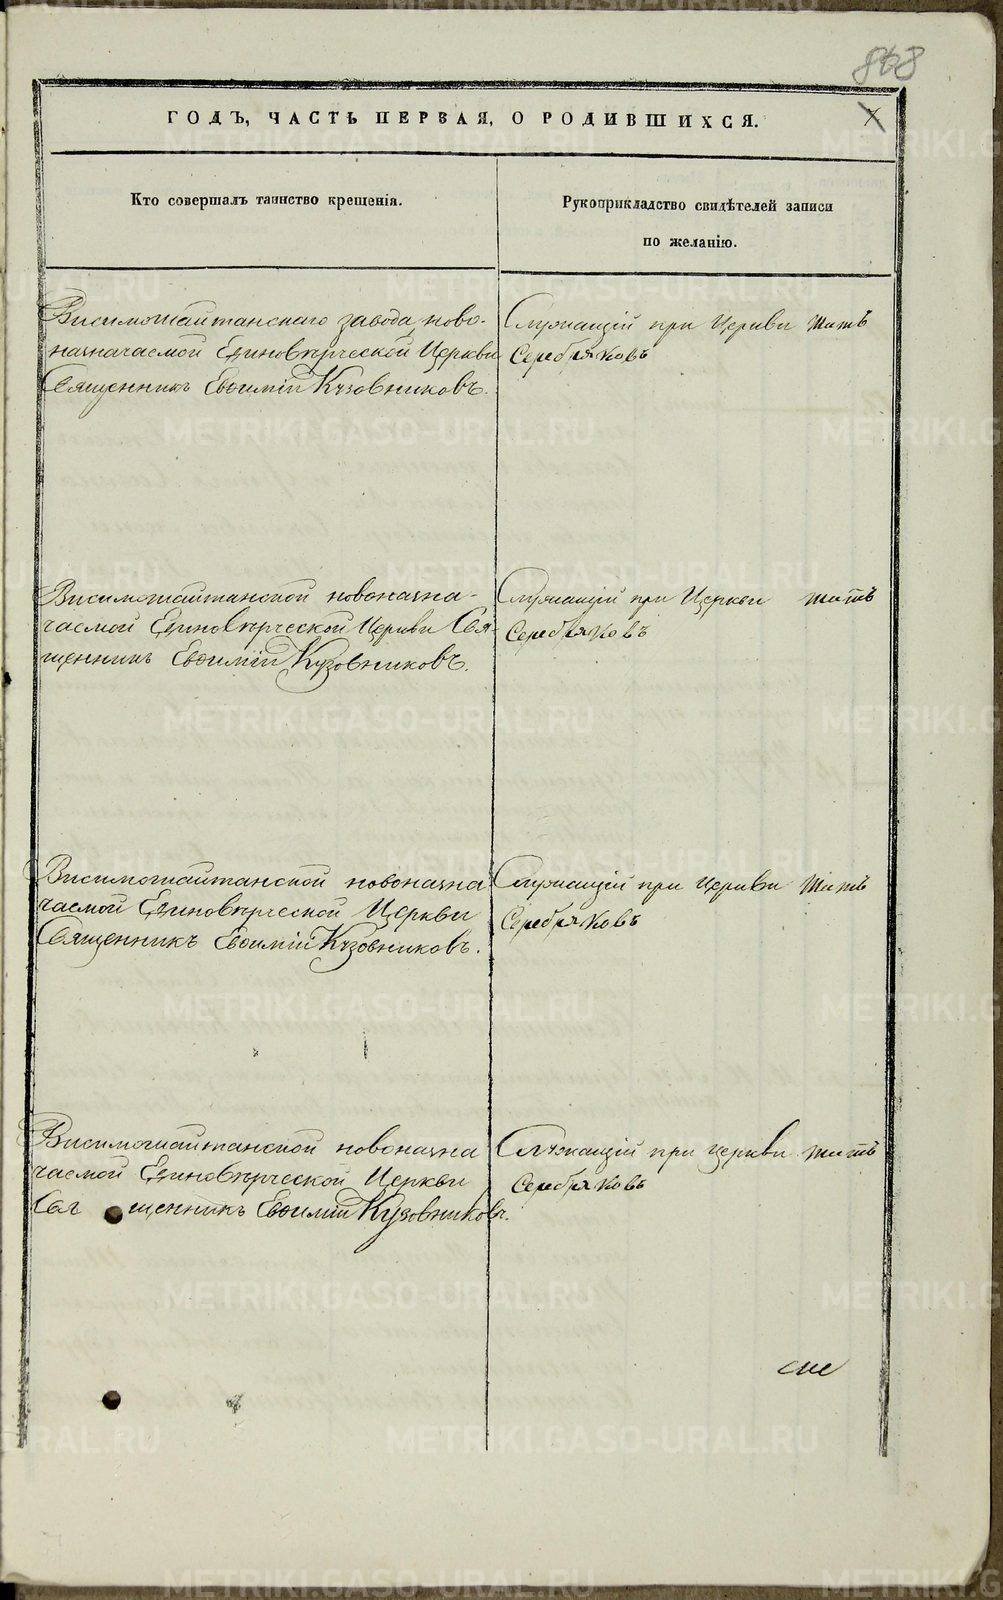 868
ГОДЪ, ЧАСТЬ ПЕРВАЯ, О РОДИВШИХСЯ.
Кто совершалъ таинство крещенія.
Рукоприкладство свидѣтелей записи
по желанію.
Висимошайтанскаго завода ново-
назначаемой Единовѣрческой Церкви
Священникъ Евѳимій Кузовниковъ.
Служащій при Церкви Титъ
Серебряковъ
Висимошайтанской новоназна-
чаемой Единовѣрческой Церкви Свя-
щенникъ Евѳимій Кузовниковъ.
Служащій при Церкви Титъ
Серебряковъ
Висимошайтанской новоназна
чаемой Единовѣрческой Церкви
Священникъ Евѳимій Кузовниковъ.
Служащій при Церкви Титъ
Серебряковъ
Висимошайтанской новоназна
чаемой Единовѣрческой Церкви
Священникъ Евѳимій Кузовниковъ.
Служащій при церкви Титъ
Серебряковъ
METRIKI.GASO-URAL.RU